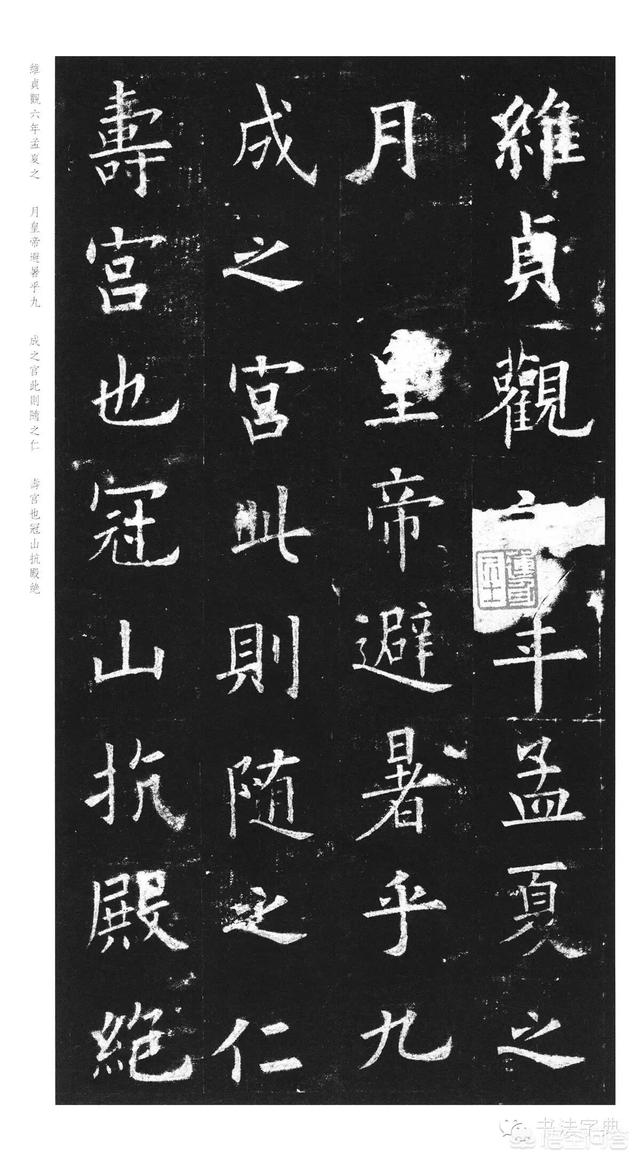 維貞觀六年孟夏之
月皇帝避暑乎九
成之宮此則随之仁
壽宮也冠山抗殿絕
維貞觀六年孟夏之 月皇帝避暑乎九 成之宮此則隨之仁 壽宮也冠山抗殿絕
书法字典
悟空问答